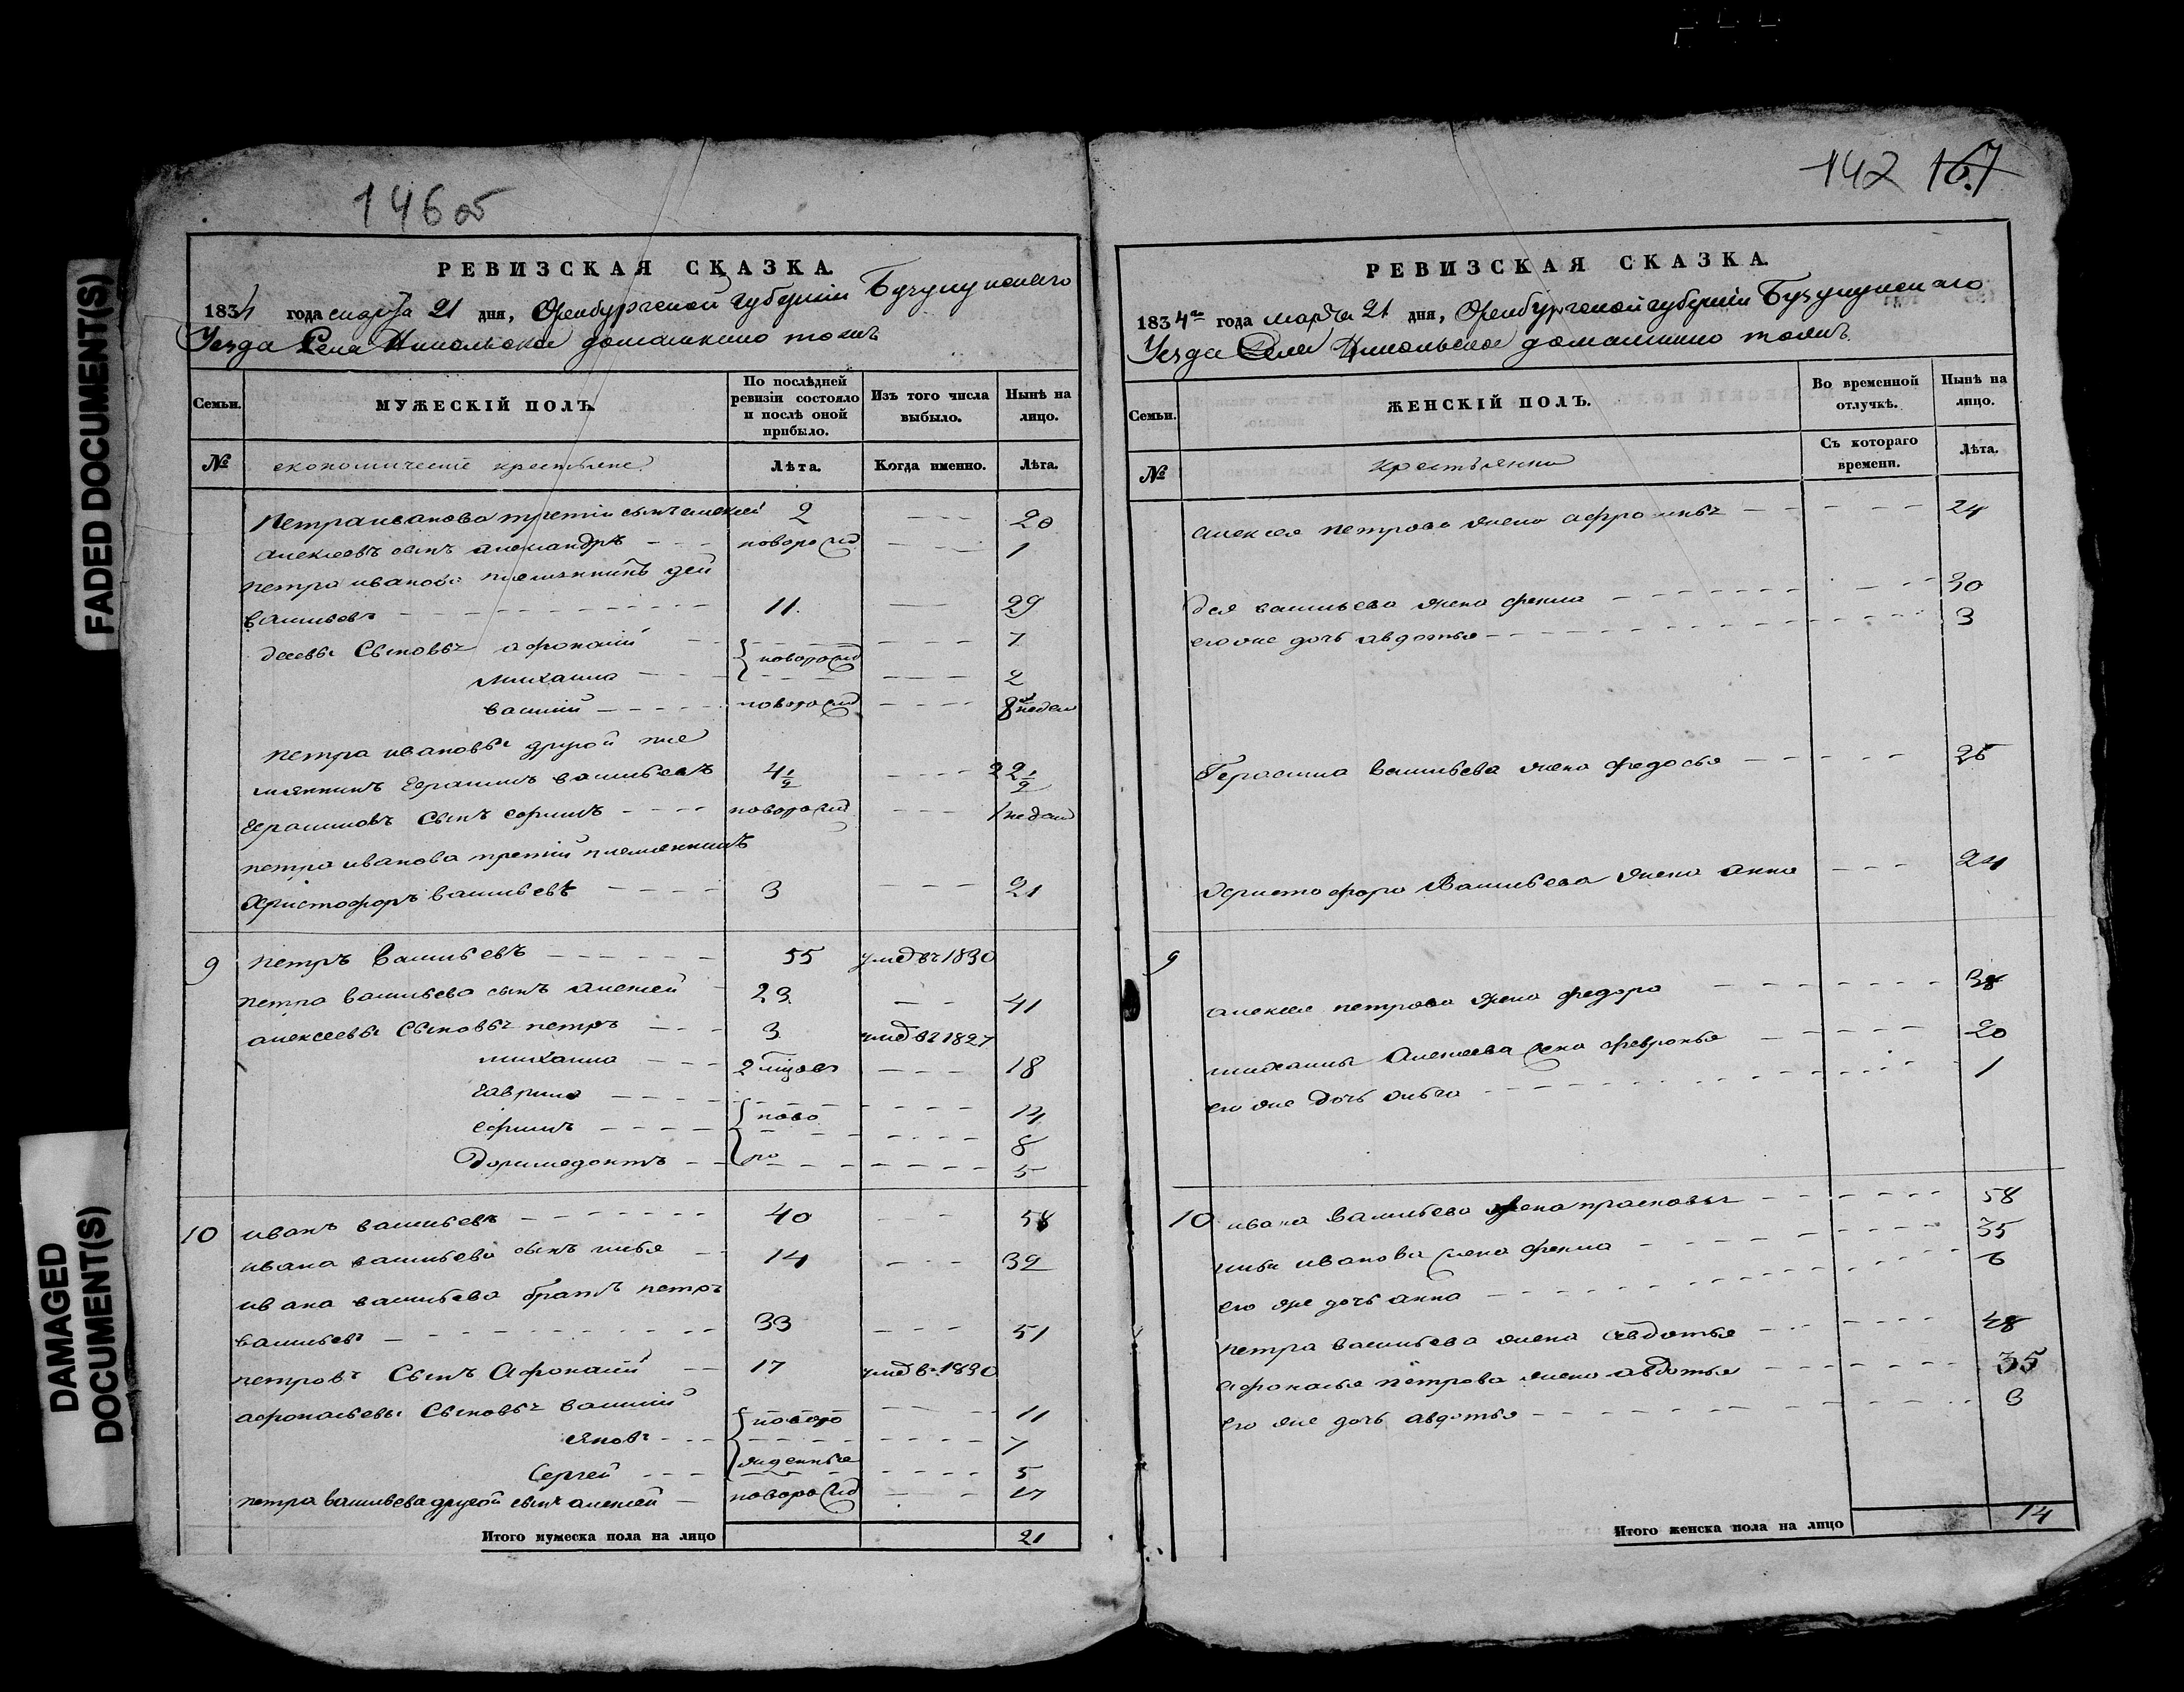 FADED DOCUMENT(S)
DAMAGED DOCUMENT(S)
146 об
РЕВИЗСКАЯ СКАЗКА.
1834 года марта 21 дня, Оренбургской губернии Бузулуцкаго
Уезда Села Никольское домашкино тожъ
Семьи.
МУЖЕСКІЙ ПОЛЪ.
По послѣдней ревизіи состояло и послѣ оной прибыло.
Изъ того числа выбыло.
Нынѣ на лицо.
№ економические крестьяне Лѣта. Когда именно. Лѣта.
Петра иванова третiй сынъ алексей 2 20
алексеевъ сынъ александръ новорожд 1
петра иванова племянникъ дей
васильевъ 11 29
деевы Сыновья афонасiй 7
новорожд
михаила 2
василiй новорожд 8 недел
петра иванова другой пле
мянникъ Герасимъ васильевъ 4 1/2 22 1/2
Герасимовъ Сынъ ефимъ новорожд 1 недел
петра иванова третiй племянникъ
Христофоръ васильевъ 3 21
9 петръ Васильевъ 55 умед въ 1830
петра васильева сынъ алексей 23 41
алексеевы Сыновья петръ 3 умед въ 1827
михаила 2 18
гаврила 14
ново
ефимъ 8
ро
Доримедонтъ 5
10 иванъ васильевъ 40 58
ивана васильева сынъ илья 14 32
ивана васильева братъ петръ
васильевъ 33 51
петровъ Сынъ Афонасiй 17 умед въ 1830
афонасьевы Сыновья василiй 11
новоро
Яковъ 7
жденные
Сергей 5
петра васильева другой сынъ алексей новорожд 17
Итого мужеска пола на лицо 21
142 167
РЕВИЗСКАЯ СКАЗКА.
1834 года марта 21 дня, Оренбургской губернии Бузулуцкаго
Уезда Села Никольское домашкино тожъ.
Семьи.
ЖЕНСКІЙ ПОЛЪ.
Во временной отлучкѣ.
Нынѣ на лицо.
№ крестьянки Съ котораго времени. Лѣта.
алексея петрова жена афросинья 24
дея васильева жена фекла 30
его же дочь авдотья 3
Герасима васильева жена федосья 25
Христофора Васильева жена анна 24
9
алексея петрова жена федора 38
михаилы Алексеева жена февронья 20
его же дочь 1
10 ивана Васильева жена прасковья 58
ильи иванова жена фекла 35
его же дочь анна 6
петра васильева жена авдотья 48
афонасья петрова жена авдотья 35
его же дочь авдотья 9
Итого женска пола на лицо 14